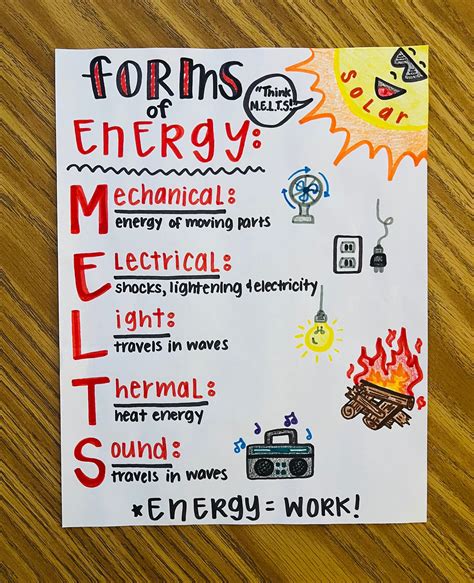 Forms
of
Energy:
"Think
M.E.L.T.S!!"
Solar
Mechanical:
energy of moving parts
Electrical:
shocks, lightening & electricity
Light:
travels in waves
Thermal:
heat energy
Sound:
travels in waves
*Energy = Work!